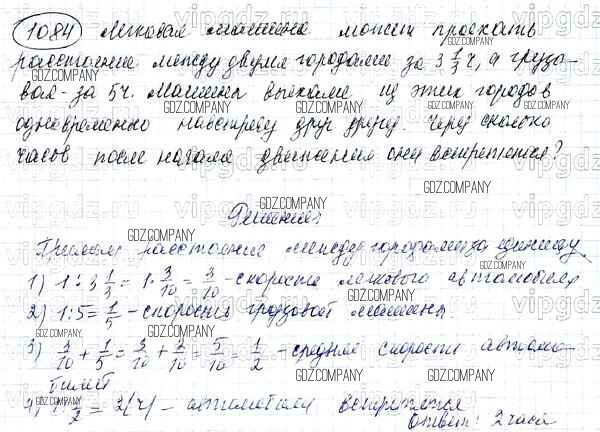 1084 Легковая машина может проехать
расстояние между двумя городами за 3 1/3 ч, а грузо-
вая - за 5 ч. Машины выехали из этих городов
одновременно навстречу друг другу. Через сколько
часов после начала движения они встретятся?
Решение:
Примем расстояние между городами за единицу
1) 1 : 3 1/3 = 1 · 3/10 = 3/10 - скорость легкового автомобиля
2) 1 : 5 = 1/5 - скорость грузовой машины.
3) 3/10 + 1/5 = 3/10 + 2/10 = 5/10 = 1/2 - средние скорости автомо-
билей
4) 1 : 1/2 = 2 (ч) - автомобили встретятся
Ответ: 2 часа
GDZ.COMPANY
vipgdz